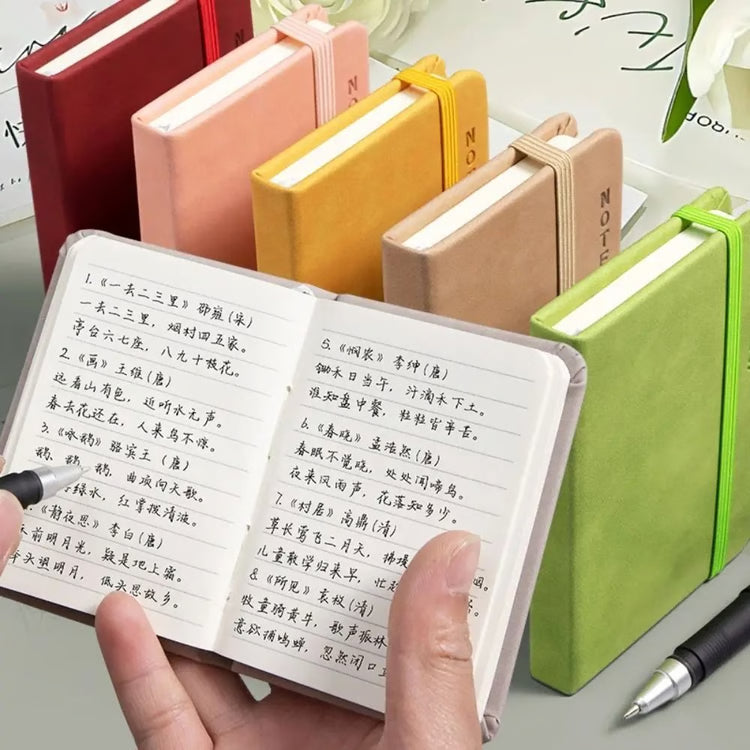 1.《一去二三里》邵雍(宋)
一去二三里，烟村四五家。
亭台六七座，八九十枝花。
2.《画》王维(唐)
远看山有色，近听水无声。
春去花还在，人来鸟不惊。
3.《咏鹅》骆宾王(唐)
鹅，鹅，鹅，曲项向天歌。
绿水，红掌拨清波。
《静夜思》李白(唐)
前明月光，疑是地上霜。
头望明月，低头思故乡。
5.《悯农》李绅(唐)
锄禾日当午，汗滴禾下土。
谁知盘中餐，粒粒皆辛苦。
6.《春晓》孟浩然(唐)
春眠不觉晓，处处闻啼鸟。
夜来风雨声，花落知多少。
7.《村居》高鼎(清)
草长莺飞二月天，拂堤
烟。
儿童散学归来早，忙
8.《所见》袁枚(清)
牧童骑黄牛，歌声振林
意欲捕鸣蝉，忽然闭口
NOTE